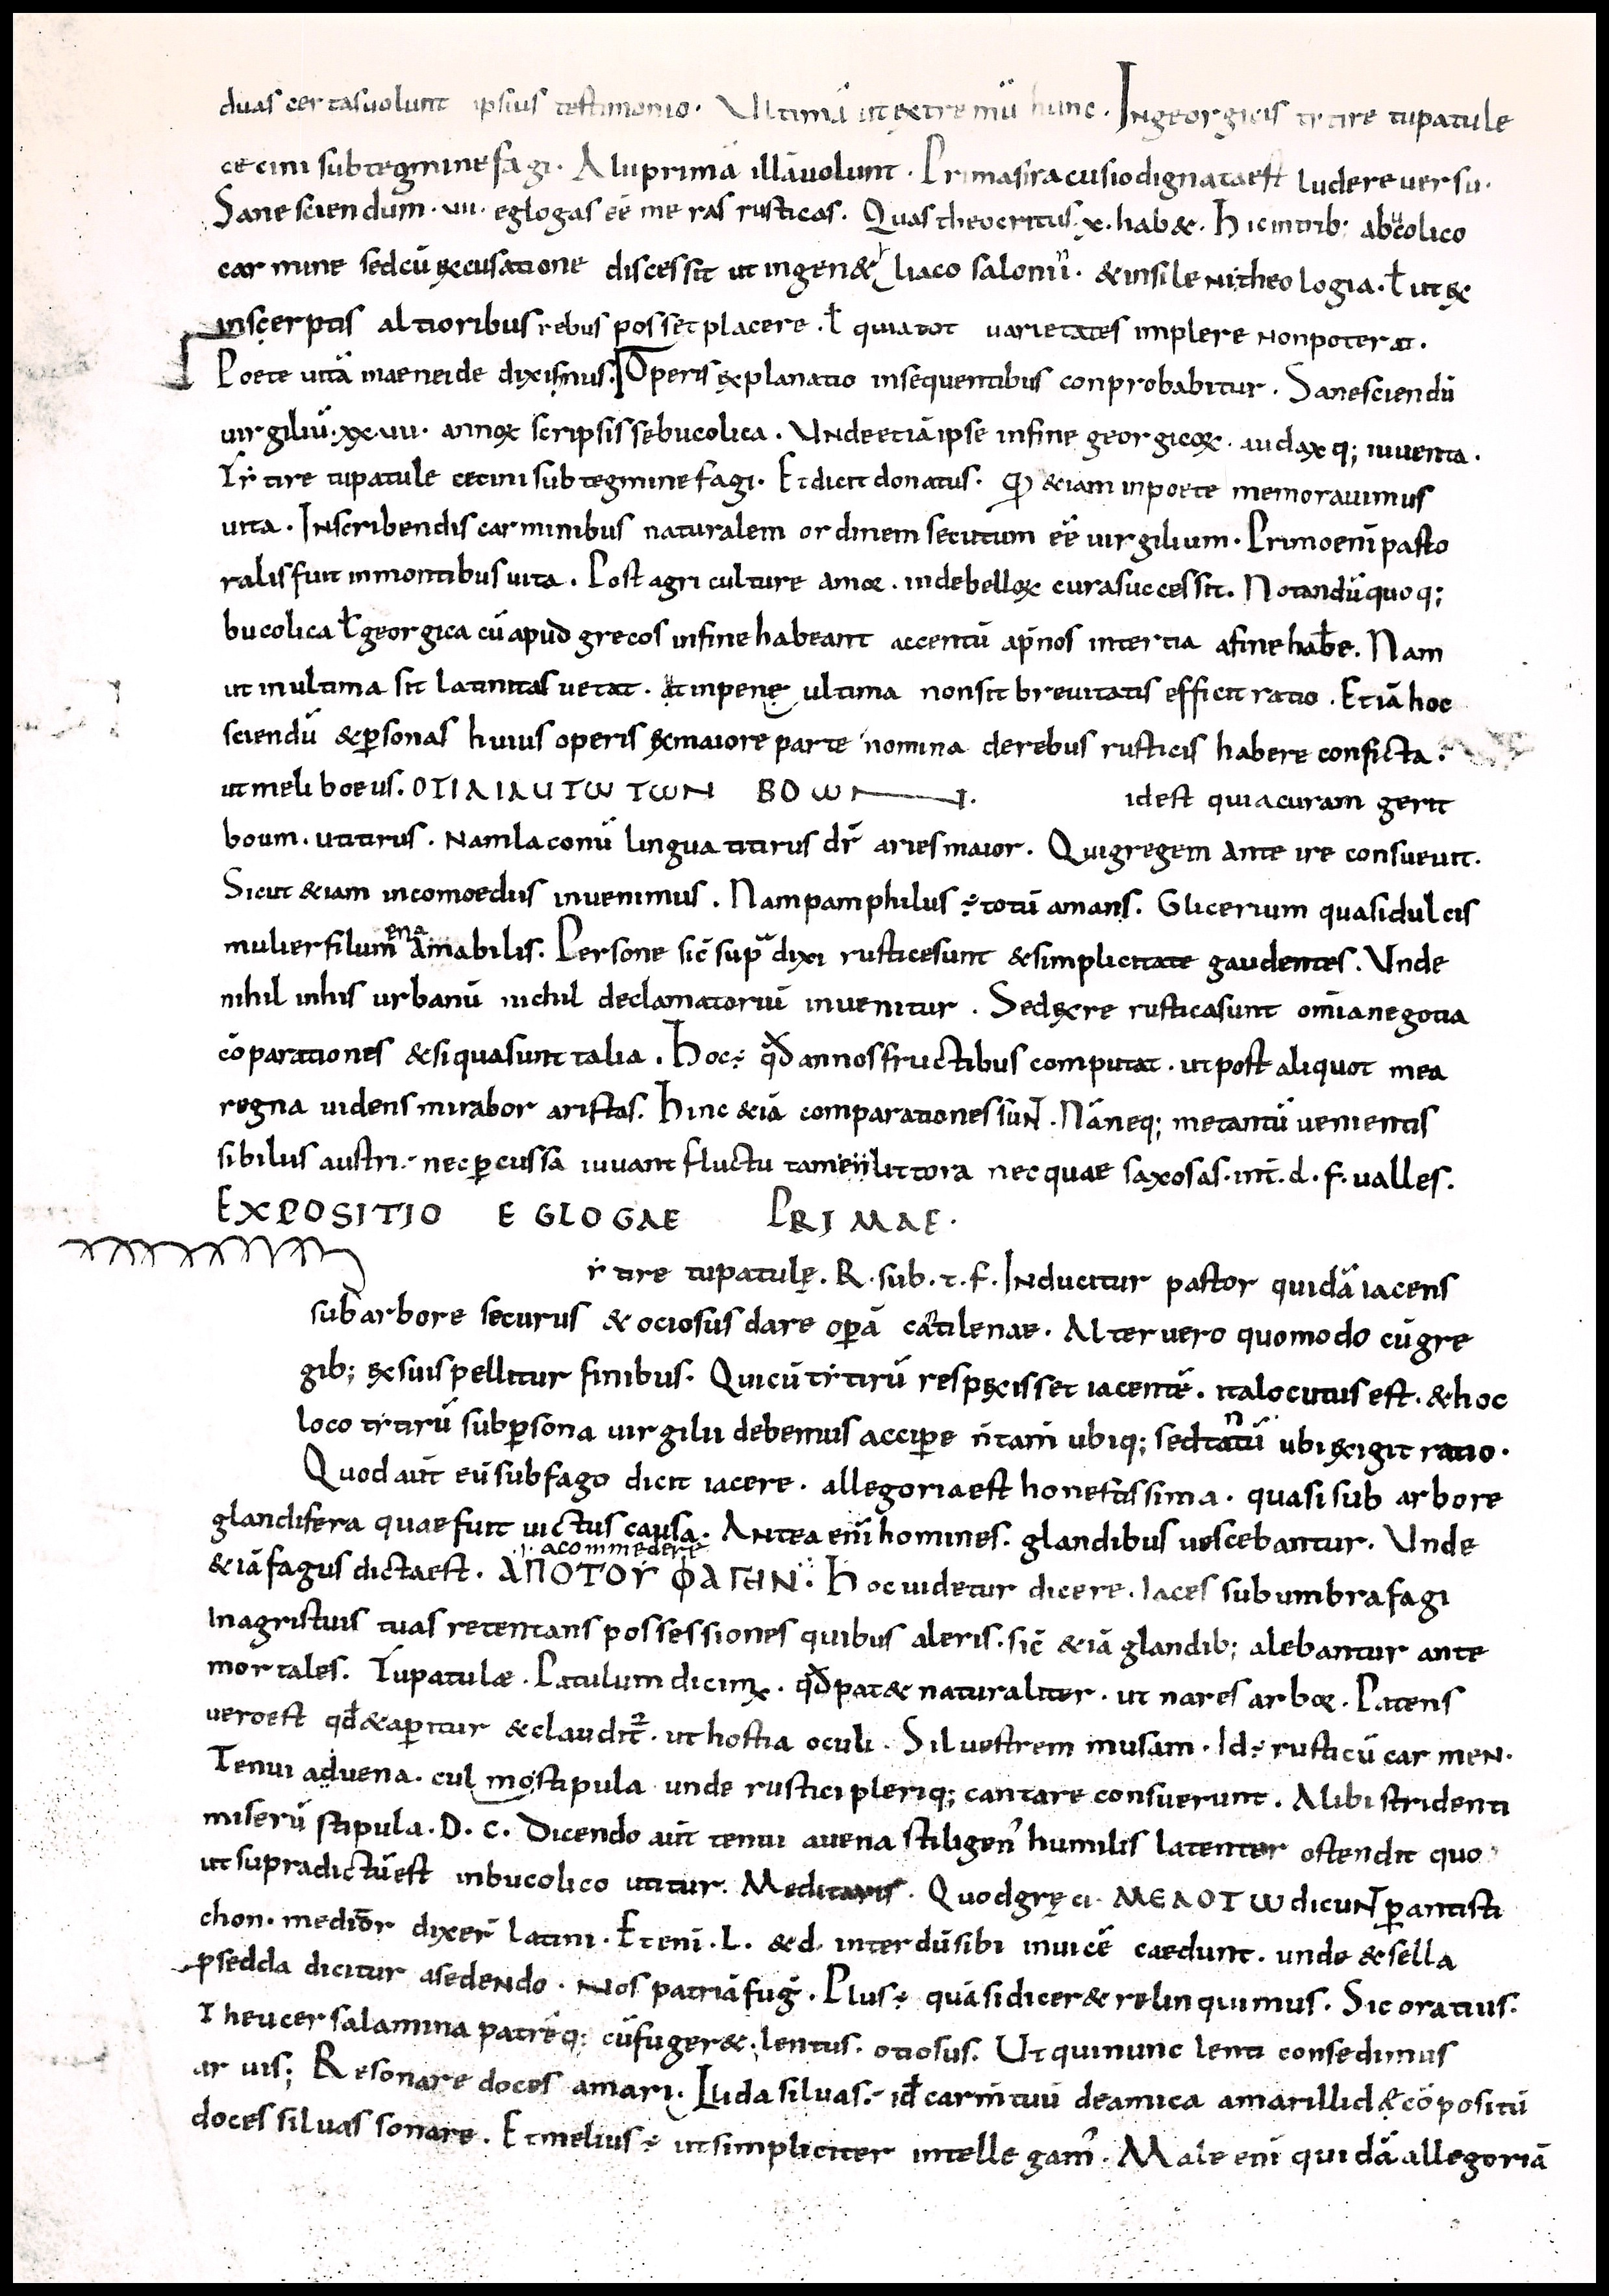 duas certas uolunt ipsius testimonio. Ultimā ut extremū hunc. In georgicis tytire tu patule
cecini sub tegmine fagi. Aliı primā illā uolunt. Prima siracusio dignata est ludere uersu.
Sane sciendum .vii. eglogas eē meras rusticas. Quas theocritus .x. hab&. Hic in trib; a bucolico
carmine sed cū excusatione discessit ut in gen&liaco salonini. & in sileni theologia. ł ut ex
inscerptis altioribus rebus posset placere. ł quia tot uarietates implere non poterat.
Poete uitā in aeneide diximus. Operis explanatio in sequentibus conprobabitur. Sane sciendū
uirgiliū .xx.viii. annoꝝ scripsisse bucolica. Unde etiā ipse in fine georgicoꝝ. audaxq; iuuenta.
Tytire tu patule cecini sub tegmine fagi. Et dicit donatus. qđ &iam in poete memorauimus
uita. In scribendis carminibus naturalem ordinem secutum eē uirgilium. Primo enī pasto
ralis fuit in montibus uita. Post agri culture amoꝝ. inde belloꝝ cura successit. Notandū quoq;
bucolica ł georgica cū apud grecos in fine habeant accentū ap̄ nos in tertia a fine habē. Nam
ut in ultima sit latinitas uetat. ut in penę ultima non sit breuitatis efficit ratio. Etiā hoc
sciendū & ꝑsonas huius operis ex maiore parte nomina de rebus rusticis habere conficta.
ut meliboeus. ΟΤΙΛΙΛUΤω ΤωΝ ΒΟωΝ .i. id est quia curam gerit
boum. ut titirus. Nam laconū lingua titirus dr̄ aries maior. Qui gregem ante ire consueuit.
Sicut &iam in comoediis inuenimus. Nam pamphilus ÷ totū amans. Glicerium quasi dulcis
mulier filumena amabilis. Persone sic̄ supra dixi rustice sunt & simplicitate gaudentes. Unde
nihil in his urbanū nichil declamatoriū inuenitur. Sed ex re rustica sunt om̄ia negotia
cōparationes & si qua sunt talia. Hoc ÷ qđ annos fructibus computat. ut post aliquot mea
regna uidens mirabor aristas. Hinc &iā comparationes sunt. Nā neq; me tantū uenientis
sibilus austri. nec ꝑcussā iuuant fluctu tam littora nec quae saxosas. int̄. d. f. ualles.
EXPOSITIO EGLOGAE PRIMAE.
ytire tu patulę. R. sub. t. f. Inducitur pastor quidā iacens
sub arbore securus & ociosus dare oꝑā cantilenae. Alter uero quomodo cū gre
gib; ex suis pellitur finibus. Qui cū tytirū respexisset iacentē. ita locutus est. & hoc
loco tytirū sub ꝑsona uirgilii debemus accipe n̄ tam̄ ubiq; sed tantū ubi exigit ratio.
Quod aut̄ eū sub fago dicit iacere. allegoria est honestissima. quasi sub arbore
glandifera quae fuit uictus causa. Antea enī homines. glandibus uescebantur. Unde
.i. a commedere
&iā fagus dicta est. ΑΠΟΤΟΥ ΦΑΓΗΝ. Hoc uidetur dicere. Iaces sub umbra fagi
in agris tuis tuas retentans possessiones quibus aleris. sic̄ &iā glandib; alebantur ante
mortales. Tu patulæ. Patulum dicimꝰ. qđ pat& naturaliter. ut nares arboꝝ. Patens
uero est qđ & aꝑitur & claudit᷑. ut hostia oculi. Siluestrem musam. Id ÷ rusticū carmen.
Tenui aduena. culmo stipula unde rustici pleriq; cantare consuerunt. Alibi stridenti
miserū stipula. D. C. Dicendo aut̄ tenui auena stili gen᾽ humilis latenter ostendit quo
ut supra dictū est in bucolico utitur. Meditaris. Quod gręci ΜΕΛΟΤω dicunt ꝑ antisti
chon. medior dixer̄ latini. Etenī. L. & d. interdū sibi inuicē caedunt. unde & sella
psedda dicitur a sedendo. Nos patriā fuḡ. Plus ÷ quā si dicer& relinquimus. Sic oratius.
Theucer salamina patrēq; cū fuger&. lentus. otiosus. Ut qui nunc lenti consedimus
arvis; Resonare doces amari. Luda siluas. ÷ iđ carm̄ tuū de amica amarillid& cōpositū
doces siluas sonare. Et melius ÷ ut simpliciter intellegam᾽. Male enī quidā allegoriā